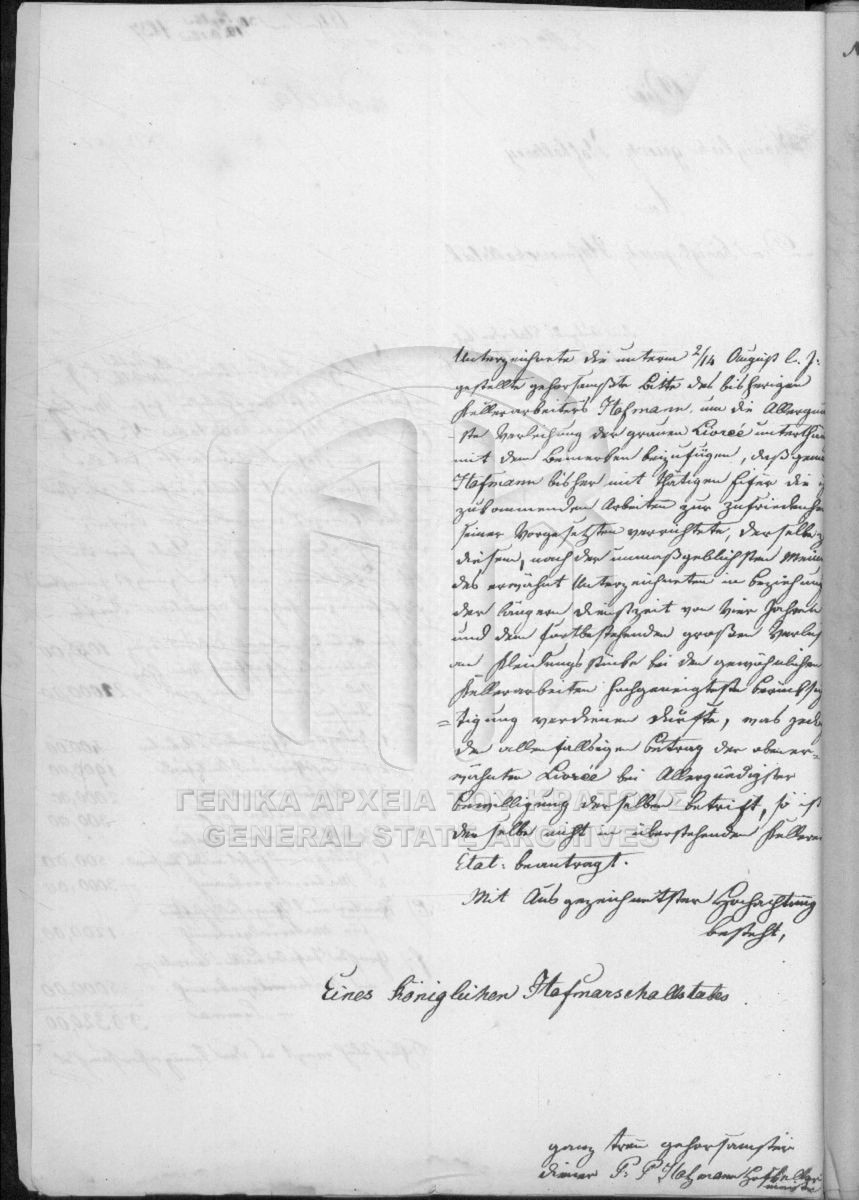 Unterzeichnete die unterm 2/14 August l. J.
gestellte gehorsamste Bitte des bisherigen
Kellerarbeiters Hofmann, um die Allergnä
ste Verleihung der grauen Livreé unterthän
mit dem Bemerken beizufügen, daß gena
Hofmann bisher mit thätigen Eifer die
zukommenden Arbeiten zur Zufriedenhei
seiner Vorgesetzten verrichtete, derselbe
diesem, nach der unmaßgeblichsten Mein
des erwähnt Unterzeichneten in Beziehung
der längern Dienstzeit von vier Jahren
und den fortbestehenden großen Verlus
an Kleidungsstücke bei den gewöhnlichen
Kellerarbeiten hochgeneigteste Berücksich
=tigung verdienen dürfte, was jedo
den allenfallsigen Betrag der obener=
wähnten Livreé bei Allergnädigster
Bewilligung derselben betrift, so ist
derselbe nicht in überstehenden Kellerei
Etat beantragt.
Mit Ausgezeichnetster Hochachtung
besteht,
Eines Königlichen Hofmarschallstabes
ganz treu gehorsamster
diener P. P.
ΓΕΝΙΚΑ ΑΡΧΕΙΑ ΤΟΥ ΚΡΑΤΟΥΣ
GENERAL STATE ARCHIVES